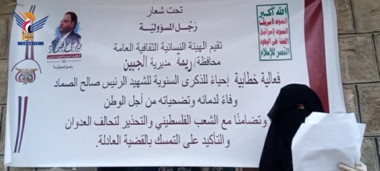 تحت شعار
رَجُل المسؤوليّة
تقيم الهيئة النسائية الثقافية العامة
محافظة/ ريمة مديرية الجبين
فعالية خطابية إحياءً للذكرى السنوية للشهيد الرئيس صالح الصماد
وفاءً لدمائه وتضحياته من أجل الوطن
وتضامنًا مع الشعب الفلسطيني والتحذير لتحالف العدوان
والتأكيد على التمسك بالقضية العادلة.
الله أكبر
الموت لأمريكا
الموت لإسرائيل
اللعنة على اليهود
النصر للإسلام